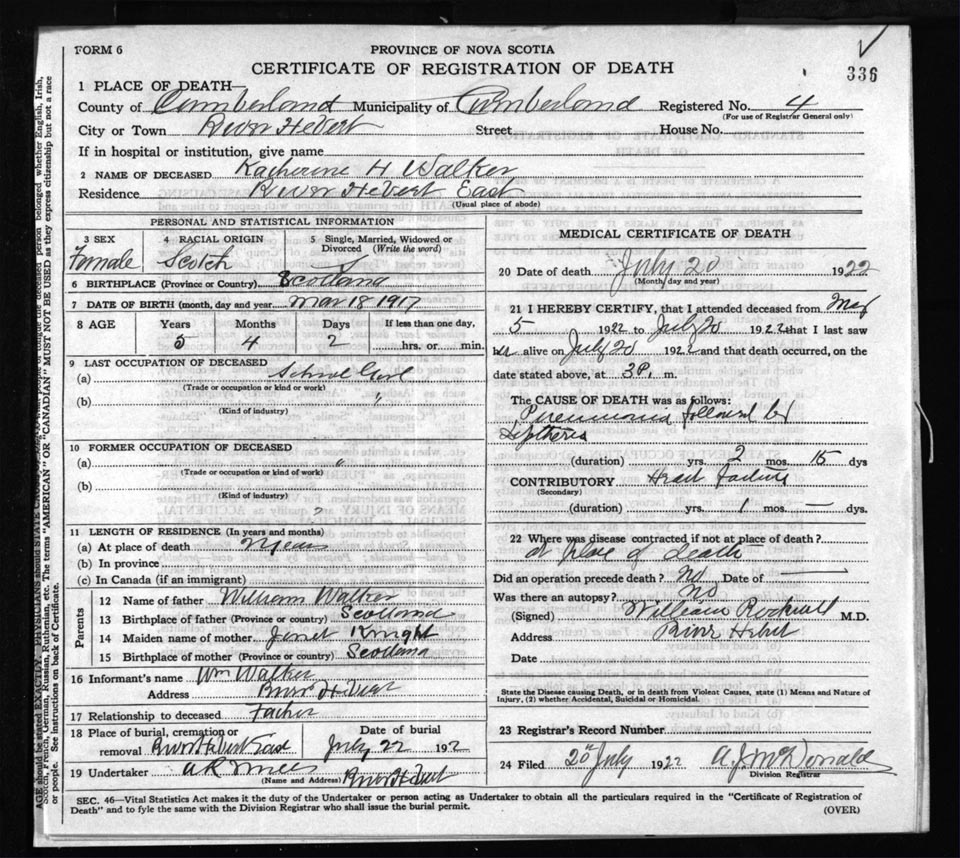 FORM 6
PROVINCE OF NOVA SCOTIA
CERTIFICATE OF REGISTRATION OF DEATH
336
1 PLACE OF DEATH—
County of Cumberland Municipality of Cumberland Registered No. 4
(For use of Registrar General only)
City or Town River Hebert Street House No.
If in hospital or institution, give name
2 NAME OF DECEASED Katherine H Walker
Residence River Hebert East
(Usual place of abode)
PERSONAL AND STATISTICAL INFORMATION
3 SEX 4 RACIAL ORIGIN 5 Single, Married, Widowed or Divorced (Write the word)
Female Scotch
6 BIRTHPLACE (Province or Country) Scotland
7 DATE OF BIRTH (month, day and year) Mar 18 1917
8 AGE Years Months Days If less than one day,
5 4 2 hrs. or min.
9 LAST OCCUPATION OF DECEASED
(a) School Girl
(Trade or occupation or kind or work)
(b) "
(Kind of industry)
10 FORMER OCCUPATION OF DECEASED
(a) "
(Trade or occupation or kind of work)
(b)
(Kind of industry)
11 LENGTH OF RESIDENCE (In years and months)
(a) At place of death
(b) In province
(c) In Canada (if an immigrant)
Parents
12 Name of father William Walker
13 Birthplace of father (Province or country) Scotland
14 Maiden name of mother Janet Knight
15 Birthplace of mother (Province or country) Scotland
16 Informant's name Wm Walker
Address River Hebert
17 Relationship to deceased Father
18 Place of burial, cremation or removal River Hebert East Date of burial July 22 192
19 Undertaker River Hebert
(Name and Address)
MEDICAL CERTIFICATE OF DEATH
20 Date of death July 20 1922
(Month, day and year)
21 I HEREBY CERTIFY, that I attended deceased from May
5 1922 to July 20 1922 that I last saw
her alive on July 20 1922 and that death occurred, on the
date stated above, at 3 P. m.
The CAUSE OF DEATH was as follows:
Pneumonia followed by
(duration) yrs. 2 mos. 15 dys
CONTRIBUTORY Heart Failure
(Secondary)
(duration) yrs. 1 mos. — dys.
22 Where was disease contracted if not at place of death?
at place of death
Did an operation precede death? No Date of
Was there an autopsy? No
(Signed) William Rockwell M.D.
Address River Hebert
Date
State the Disease causing Death, or in death from Violent Causes, state (1) Means and Nature of
Injury, (2) whether Accidental, Suicidal or Homicidal.
23 Registrar's Record Number
24 Filed 20th July 1922 A J McDonald
Division Registrar
SEC. 46—Vital Statistics Act makes it the duty of the Undertaker or person acting as Undertaker to obtain all the particulars required in the "Certificate of Registration of
Death" and to fyle the same with the Division Registrar who shall issue the burial permit.
(OVER)